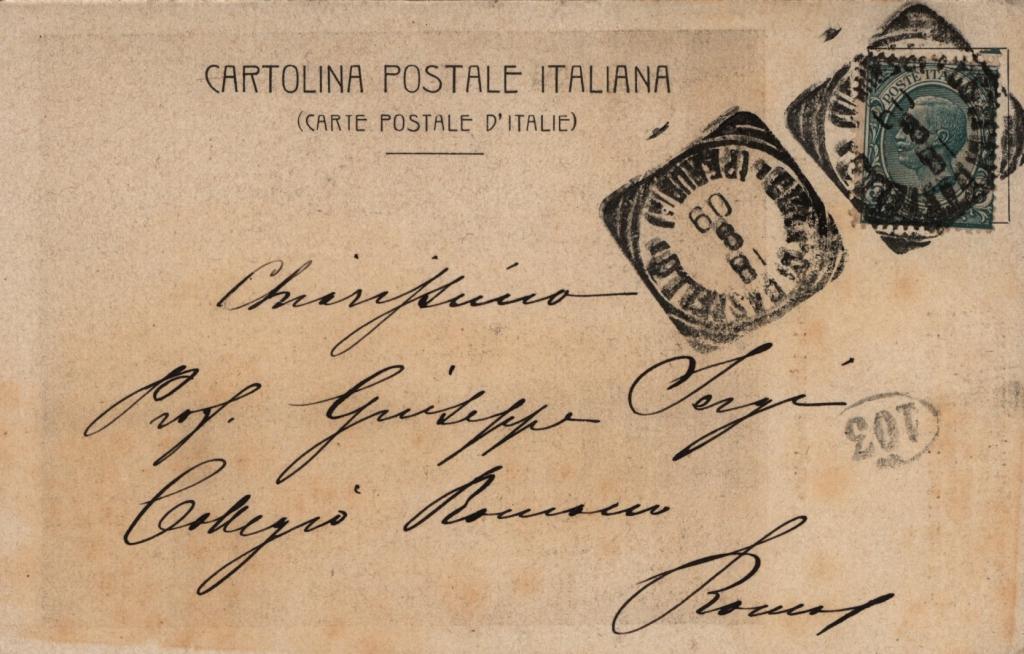 CARTOLINA POSTALE ITALIANA
(CARTE POSTALE D'ITALIE)
POSTE ITA
18 8 09
Chiarissimo
Prof. Giuseppe Sergi
103
Collegio Romano
Roma